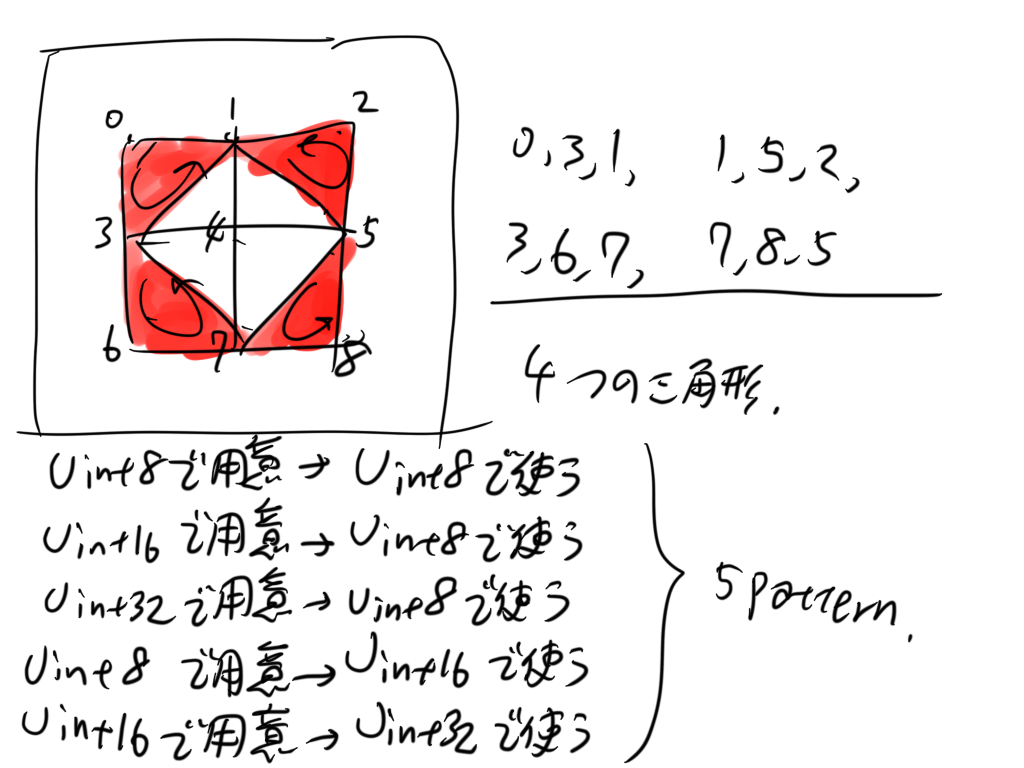 0 1 2
3 4 5
6 7 8
0,3,1, 1,5,2,
3,6,7, 7,8,5
4つの三角形.
Uint8で用意→Uint8で使う
Uint16で用意→Uint8で使う
Uint32で用意→Uint8で使う
Uint8で用意→Uint16で使う
Uint16で用意→Uint32で使う
5 pattern.